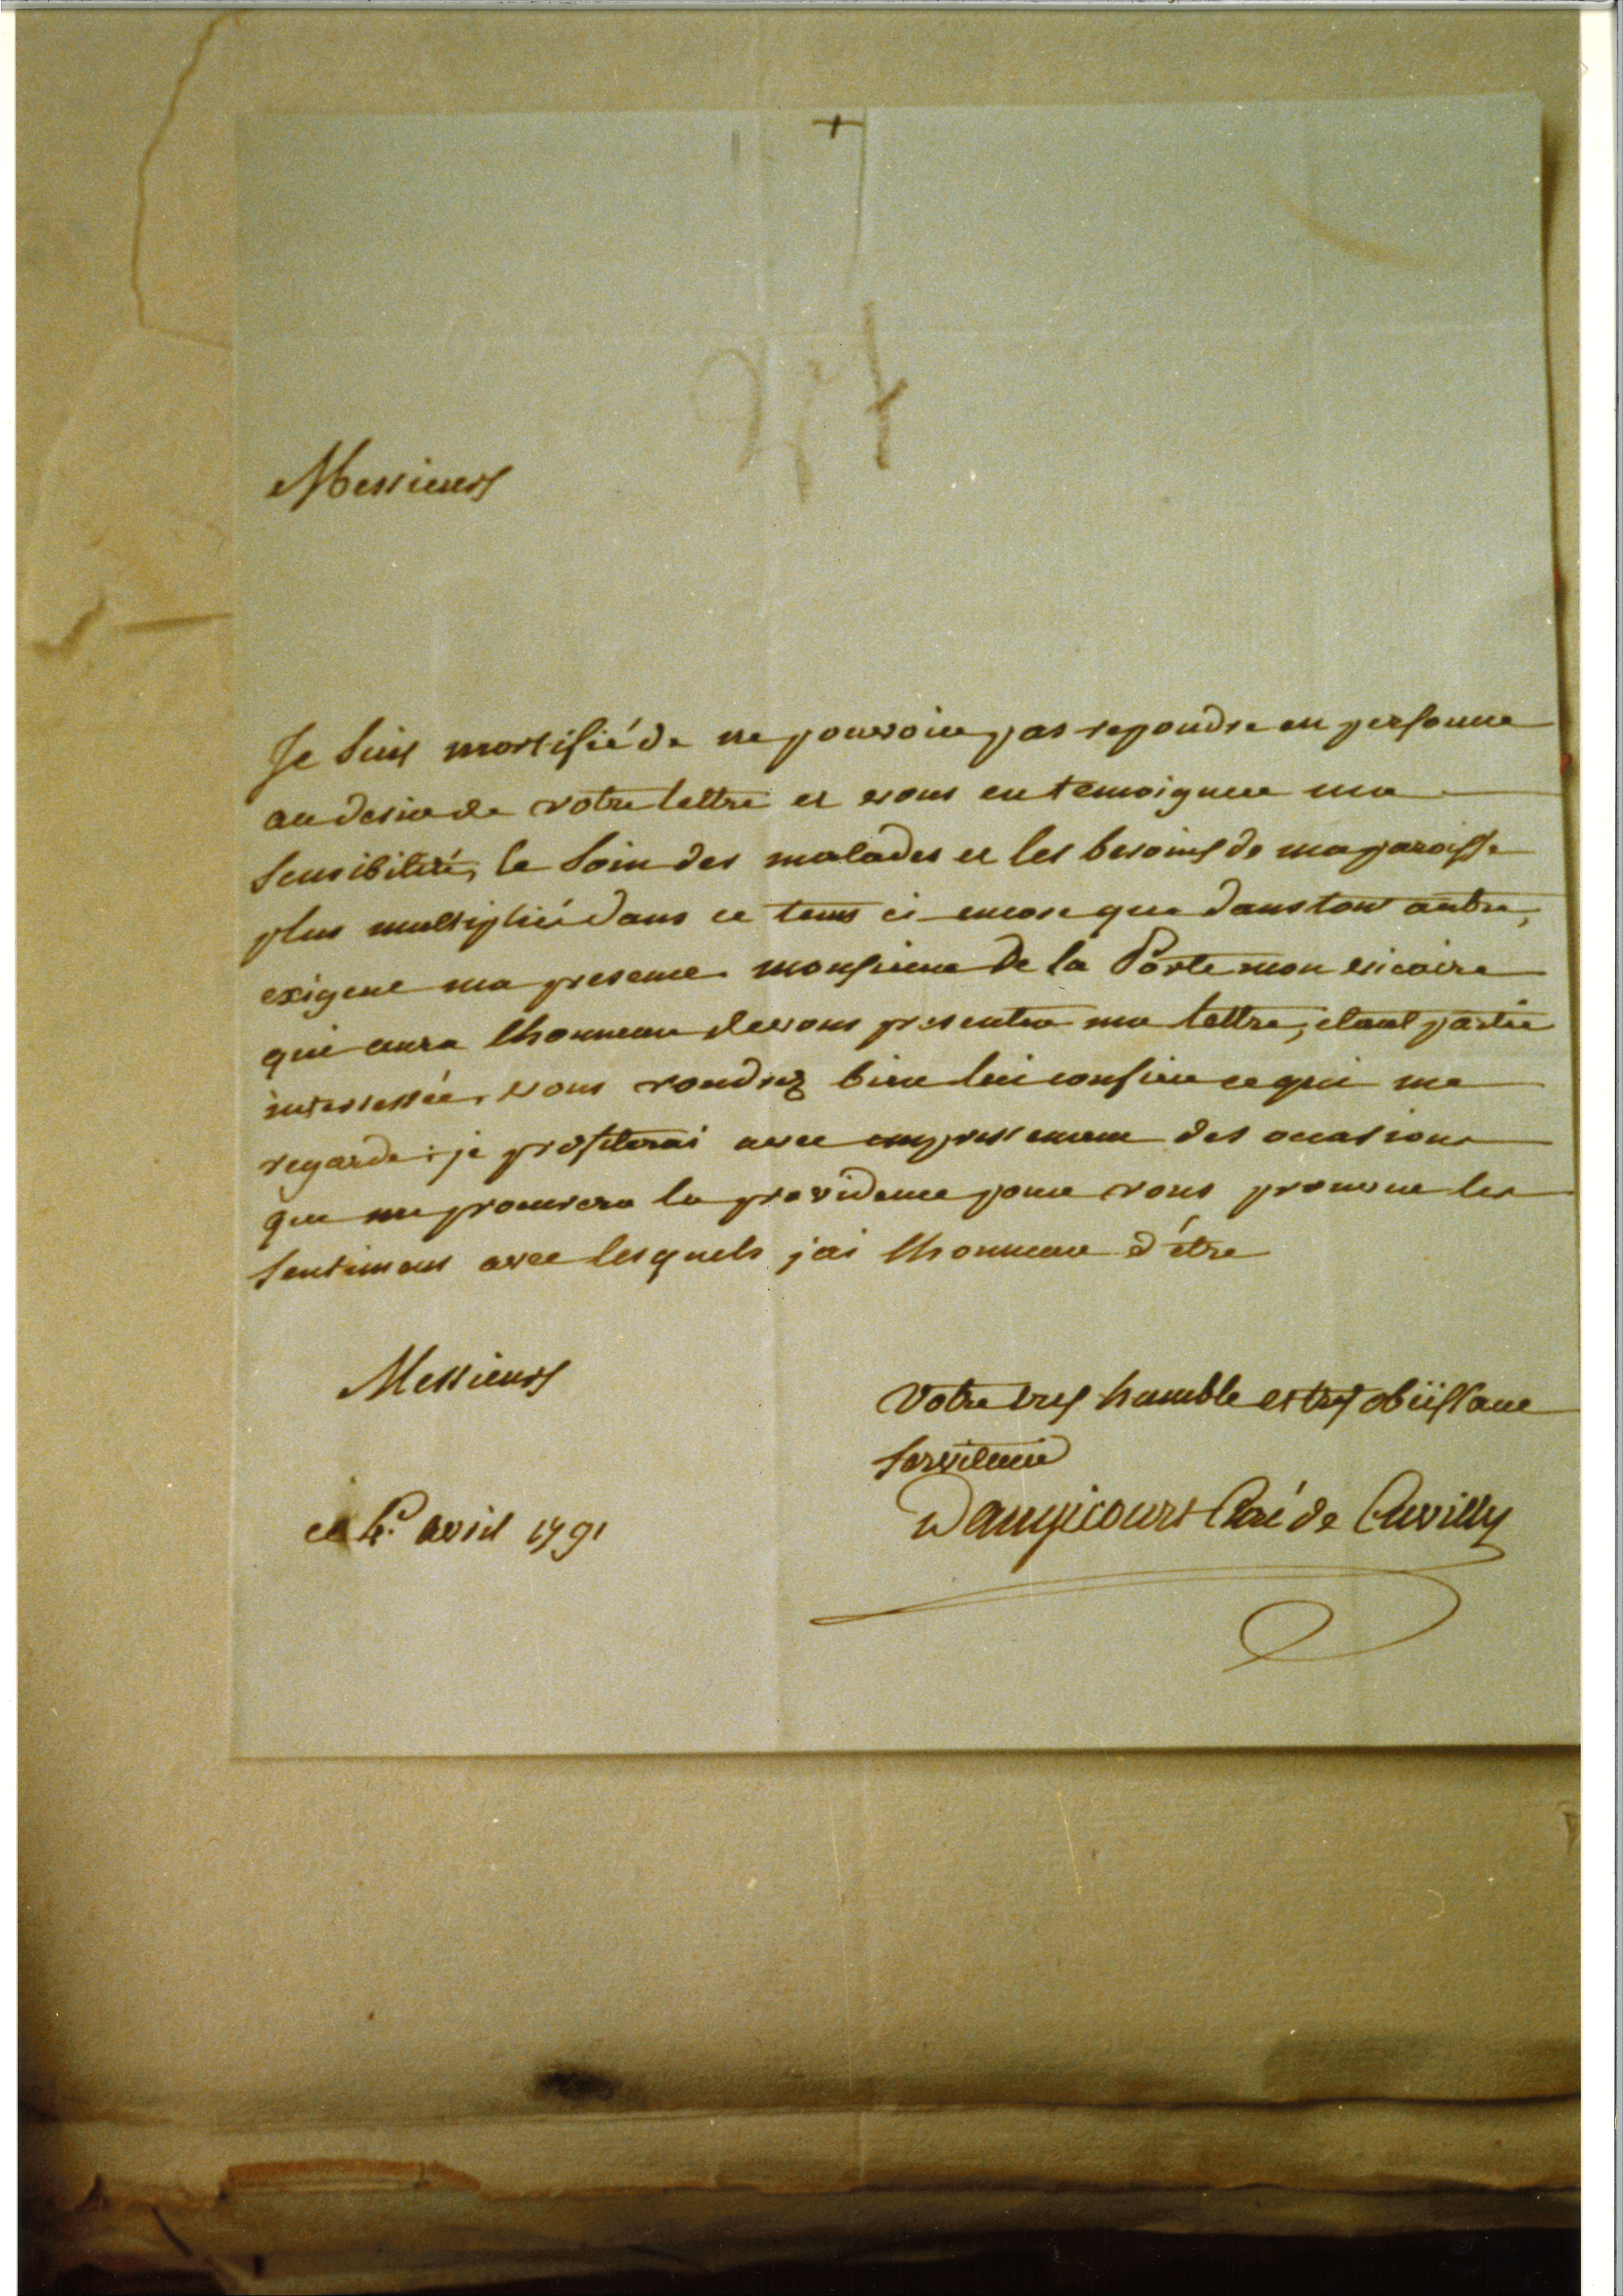 Messieurs
Je suis mortifié de ne pouvoir pas repondre en personne
au desir de votre lettre et vous en temoigner ma
sensibilité, le soin des malades et les besoins de ma paroisse
plus multiplié dans ce tems ci encore que dans tout autre,
exigent ma presence. monsieur De la Porte mon vicaire
qui aura lhonneur de vous presenter ma lettre, etant partie
interessée, vous voudrez bien lui confier ce qui me
regarde : je profiterai avec empressement des occasions
que me procurera la providence pour vous prouver les
sentimens avec lesquels j'ai lhonneur d'être
Messieurs
Votre tres humble et tres obéissant
serviteur
Dangicourt Curé de Cuvilly
ce avril 1791